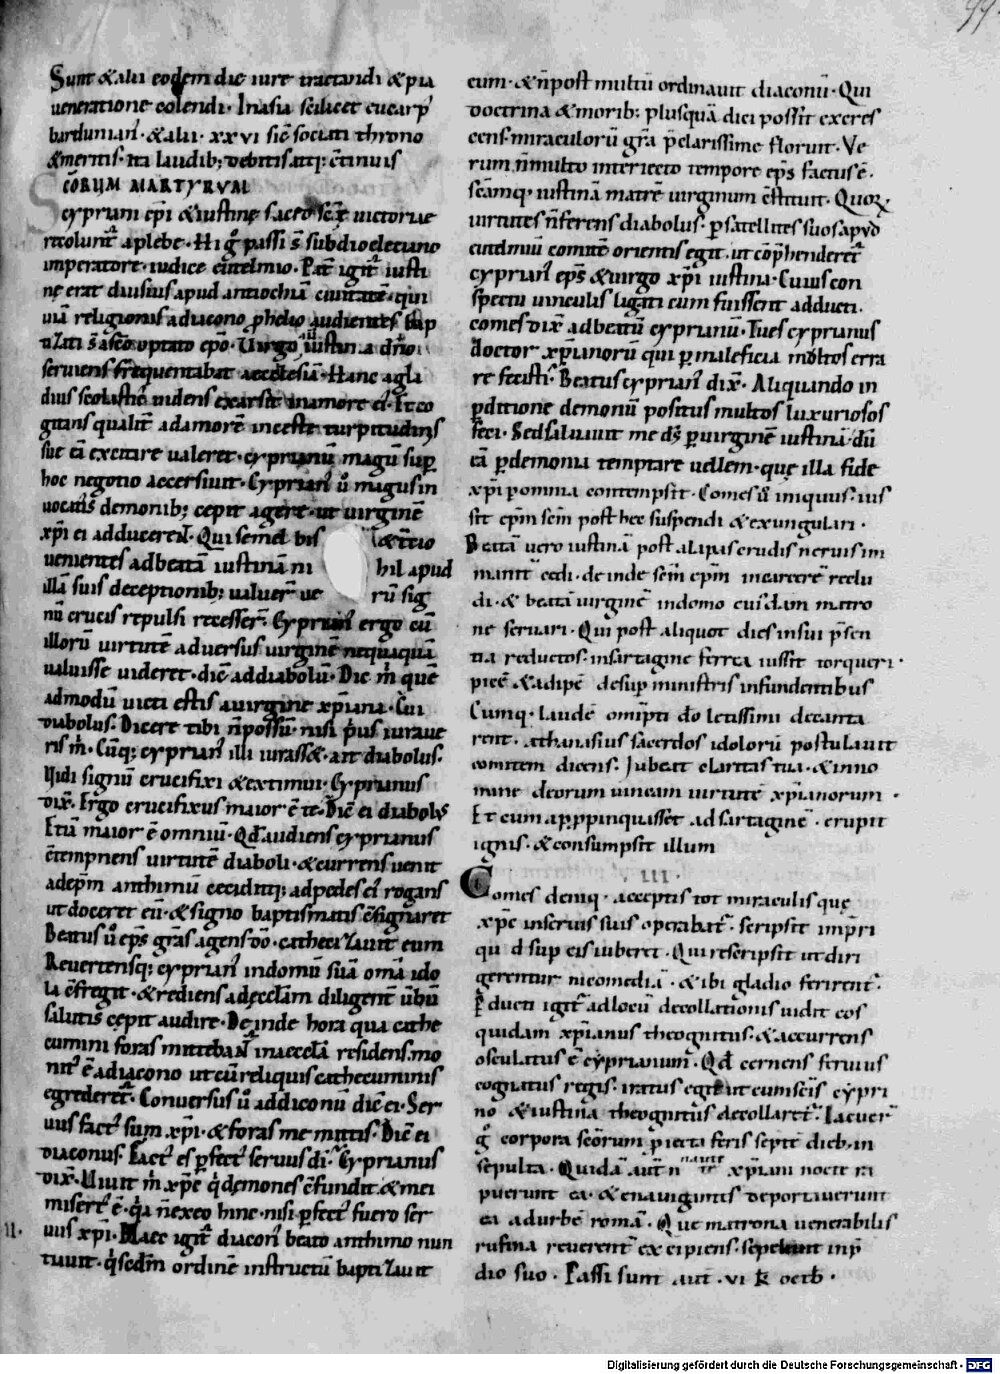 99.
Sunt & alii eodem die iure tractandi & pia
ueneratione colendi. In asia scilicet eucarp̄
& alii. xxvi sic̄ sociati throno
& meritis. ita laudib; debitis atq; c̄tinuis
CŌRUM MARTYRUM
Cypriani ep̄i & iustinę sacro sc̄ę uictorie
recolunt̄ a plebe. Hi ḡ passi s̄ sub diocletiano
imperatore. iudice eutelmio. Pat̄ igit̄ iusti
nę erat apud antiochiā ciuitatē. qui
uiā religionis a diacono audientes bap
tizati s̄ ab optato ep̄o. Uirgo iustina dn̄o
seruiens frequentabat aecclesiā. Hanc agla
dius scolastic̄ uidens exarsit in amore ei. Et co
gitans qualit̄ ad amorē inceste turpitudinis
sue eā excitare ualeret. cyprianū magū sup̄
hoc negotio accersiuit. Cyprian̄ ū magus in
uocatis demonib; cepit agere. ut uirginē
xp̄i ei adducerent. Qui semel bis & t̄tio
uenientes ad beatā iustinā ni hil apud
illā suis deceptionib; ualuer̄ ue rū sig
nū crucis repulsi recesser̄. Cyprian̄ ergo cū
illorū uirtutē aduersus uirginē nequaquā
ualuisse uideret. dic̄ ad diabolū. Dic m̄ quē
admodū uicti estis a uirgine xp̄iana. Cui
diabolus. Dicere tibi n̄ possū. nisi p̄us iuraue
ris m̄. Cūq; cyprian̄ illi iurass&. ait diabolus.
Uidi signū crucifixi & extimui. Cyprianus
dix̄. Ergo crucifixus maior ē te. Dic̄ ei diabolus
Etiā maior ē omniū. Qd̄ audiens cyprianus
c̄tempnens uirtutē diaboli. & currens uenit
ad ep̄m anthimū ceciditq; ad pedes ei rogans
ut doceret eū. & signo baptismatis c̄signaret
Beatus ū ep̄s grās agens dō. cathecizauit eum
Reuertensq; cyprian̄ in domū suā om̄a ido
la c̄fregit. & rediens ad ęcclām diligent̄ ūbū
salutis cępit audire. Deinde hora qua cathe
cumini foras mittebant̄ in aecclā residens. mo
nit̄ ē a diacono ut cū reliquis cathecuminis
egrederet̄. Conuersus ū ad diaconū dic̄ ei. Ser
uus fact̄ sum xp̄i. & foras me mittis. Dic̄ ei
diaconus. Fact̄ es p̄fect̄ seruus di. Cyprianus
dix̄. Uiuit m̄ xp̄c q̇ demones c̄fundit & mei
misert̄ ē. q̇a n̄ exeo hinc. nisi p̄fect̄ fuero ser
II. uus xp̄i. Haec igit̄ diacon̄ beato anthimo nun
tiauit. q̇ scd̄m ordinē instructū baptizauit
eum. & n̄ post multū ordinauit diaconū. Qui
doctrina & morib; plusquā dici possit excres
cens. miraculorū gr̄a p̄clarissime floruit. Ve
rum n̄ multo interiecto tempore ep̄s factus ē.
sc̄amq; iustinā matrē uirginum c̄stituit. Quorum
uirtutes n̄ ferens diabolus. p̄ satellites suos apud
eutelmiū comitē orientis egit. ut cōp̄henderet̄
cyprian̄ ep̄s & uirgo xp̄i iustina. Cuius con
spectu uinculis ligati cum fuissent adducti.
comes dix̄ ad beatū cyprianū. Tu es cyprianus
doctor xp̄ianorū qui p̄ maleficia multos erra
re fecisti. Beatus cyprian̄ dix̄. Aliquando in
p̄ditione demonū positus multos luxuriosos
feci. Sed saluauit me ds̄ p̄ uirginē iustinā. dū
eā p̄ demonia temptare uellem. quę illa fide
xp̄i p̄ omnia contempsit. Comes ū iniquus. ius
sit ep̄m sc̄m post hec suspendi & exungulari.
Beatā uero iustinā post alapas crudis neruis im
manit̄ cedi. deinde sc̄m ep̄m in carcerē reclu
di. & beatā uirginē in domo cuiusdam matro
ne seruari. Qui post aliquot dies in sui p̄sen
tia reductos. in sartagine ferrea iussit torqueri.
picē & adipē desup̄ ministris infundentibus
Cumq. laudē omīpti dō letissimi decanta
rent. athanasius sacerdos idolorū postulauit
comitem dicens. Iubeat claritas tua. & in no
mine deorum uincam uirtutē xp̄ianorum.
Et cum app̄pinquasset ad sartaginē. erupit
ignis. & consumpsit illum
III.
Comes deniq. acceptis tot miraculis quę
xp̄c in seruis suis operabat̄. scripsit imp̄ri
quid sup̄ eis iuberet. Qui rescripsit ut diri
gerentur nicomediā. & ibi gladio ferirent̄.
P̄ducti igit̄ ad locū decollationis uidit eos
quidam xp̄ianus theognitus. & accurrens
osculatus ē cyprianum. Qd̄ cernens feruus
cognatus regis. iratus egit ut cum sc̄is cypri
no & iustina theognitus decollaret̄. Iacuer̄
ḡ corpora sc̄orum p̄iecta feris septē dieb. in
sepulta. Quidā aut̄ xp̄iani nocte ra
puerunt ea. & enauigantes deportauerunt
ea ad urbē romā. Que matrona uenerabilis
rufina reuerent̄ excipiens. sepeliuit in p̄
dio suo. Passi sunt aut̄. vi k̄ octb.
Digitalisierung gefördert durch die Deutsche Forschungsgemeinschaft - DFG